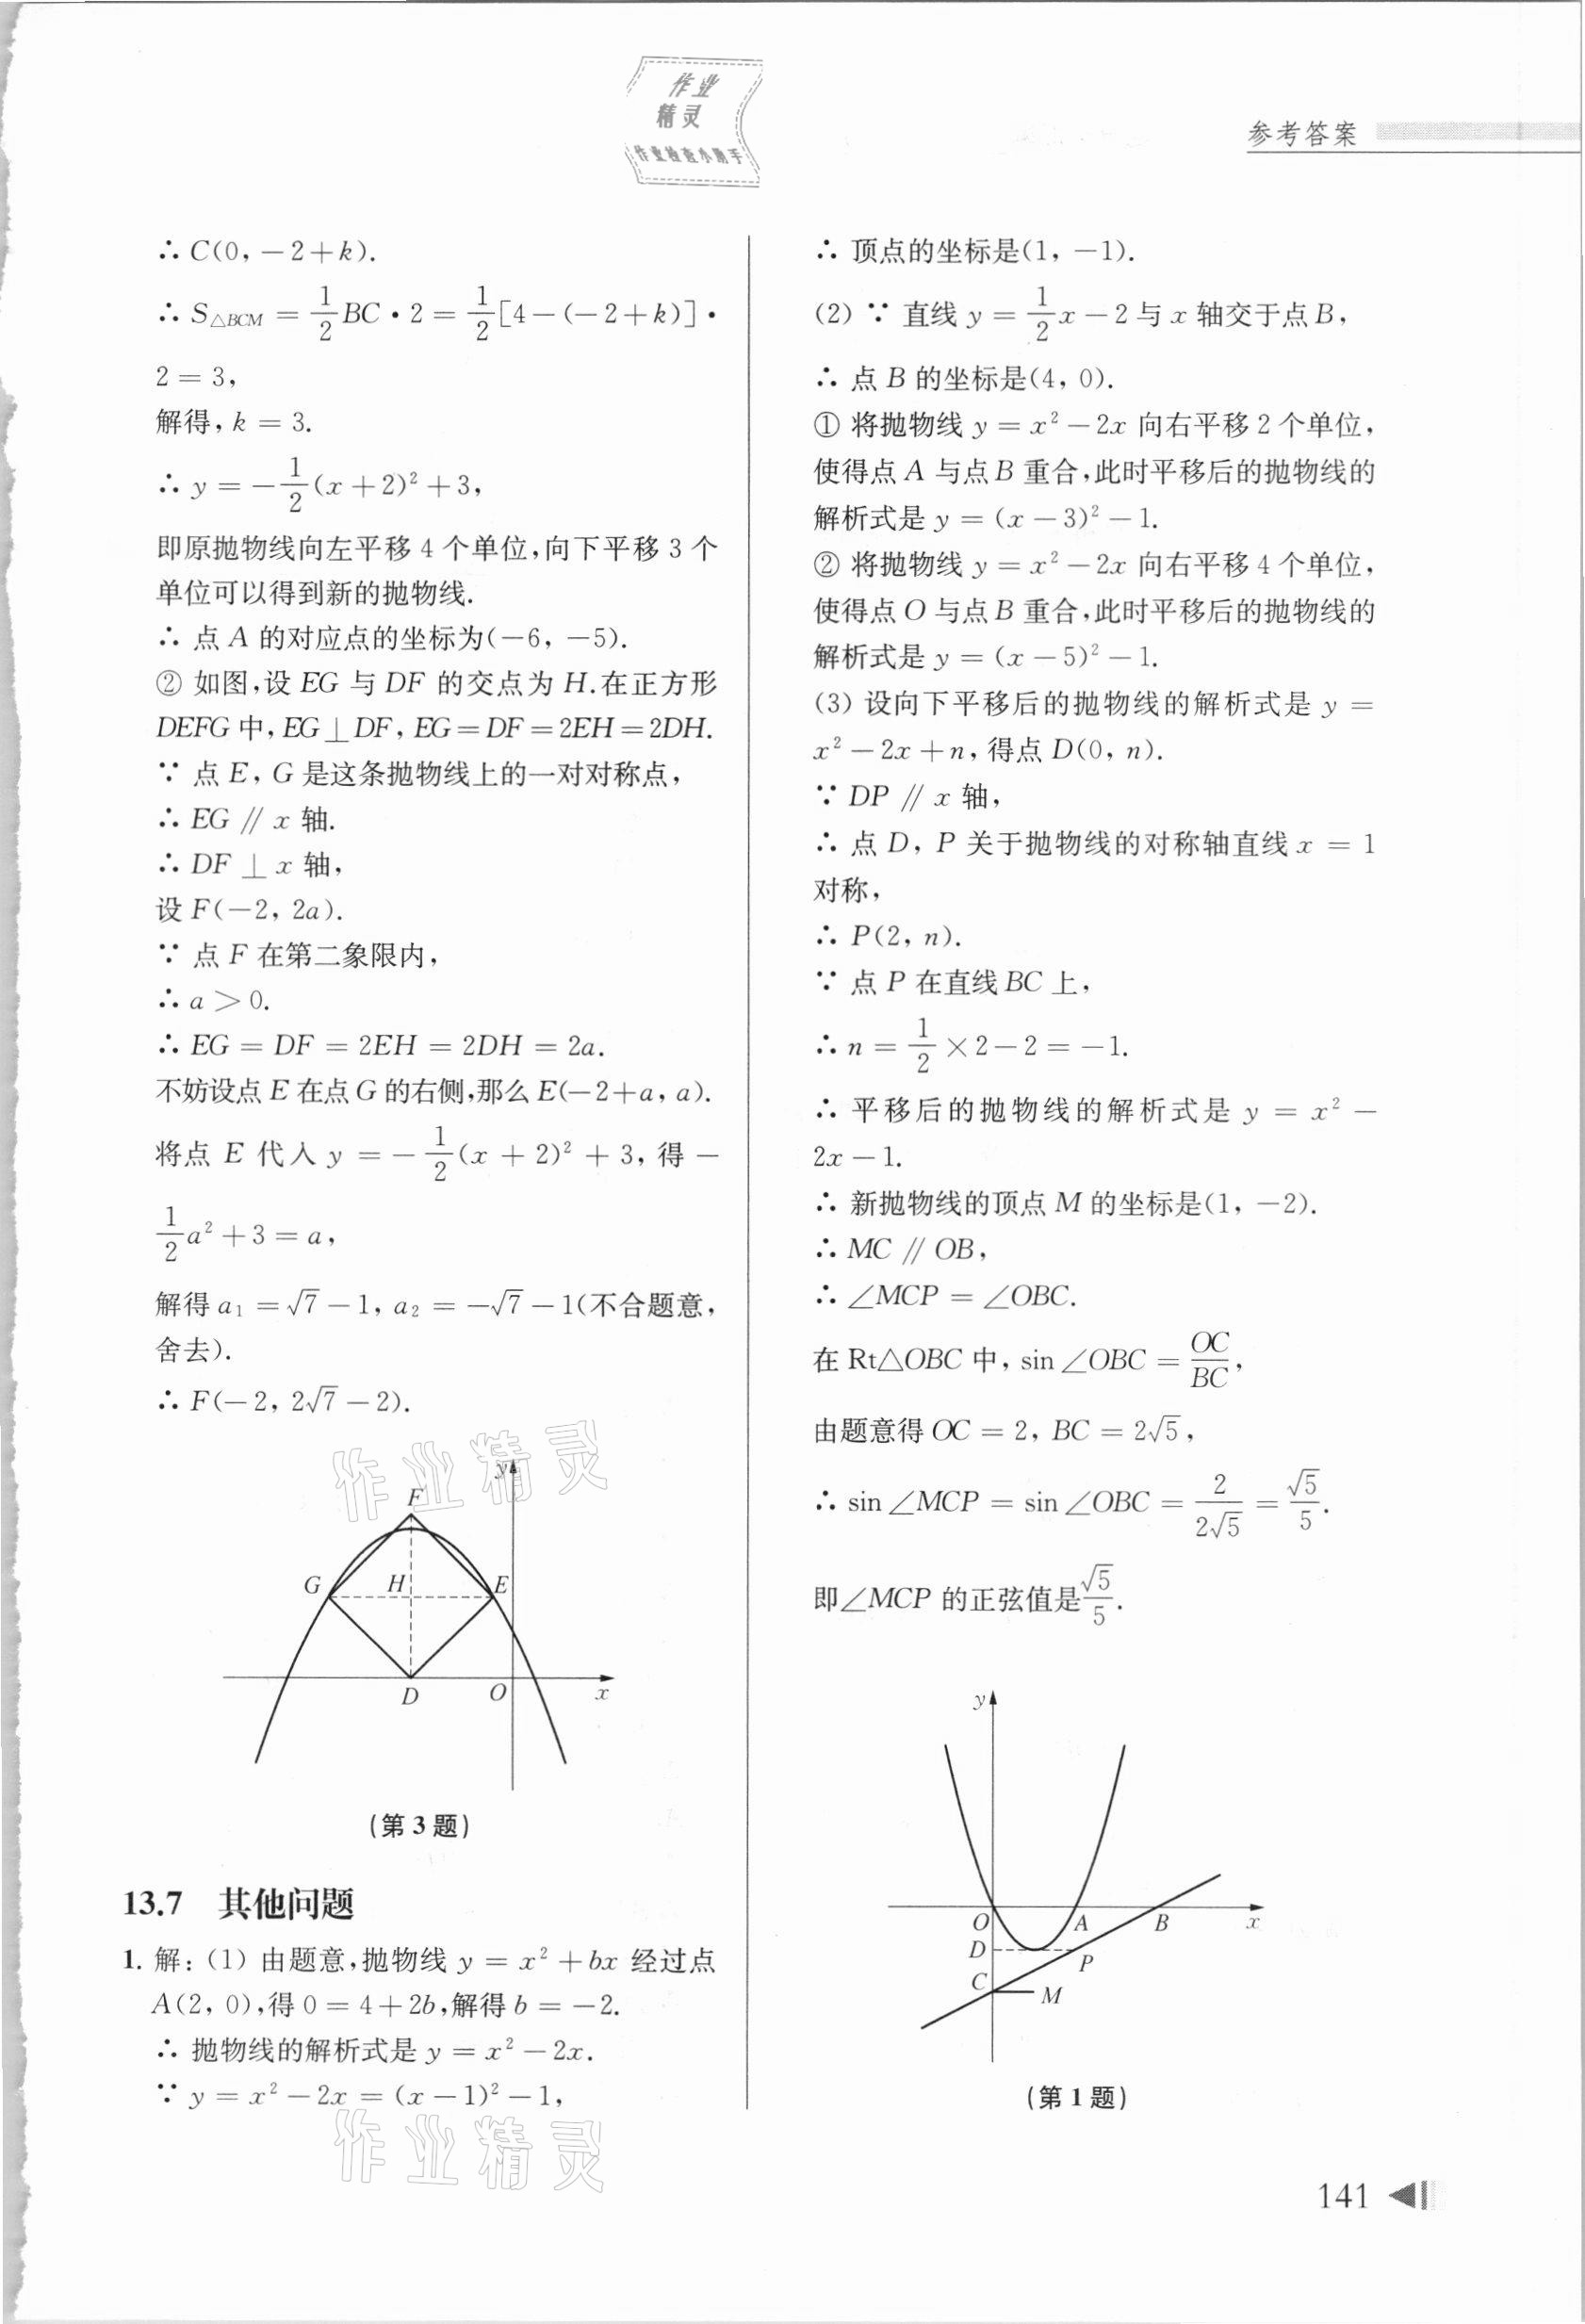 作业
精灵
作业检查小助手
参考答案
∴ C(0, −2+k).
∴ S△BCM = 1/2 BC · 2 = 1/2[4−(−2+k)] ·
2 = 3,
解得, k = 3.
∴ y = −1/2(x+2)² + 3,
即原抛物线向左平移 4 个单位,向下平移 3 个
单位可以得到新的抛物线.
∴ 点 A 的对应点的坐标为(−6, −5).
② 如图,设 EG 与 DF 的交点为 H.在正方形
DEFG 中, EG⊥DF, EG=DF=2EH=2DH.
∵ 点 E, G 是这条抛物线上的一对对称点,
∴ EG // x 轴.
∴ DF ⊥ x 轴,
设 F(−2, 2a).
∵ 点 F 在第二象限内,
∴ a > 0.
∴ EG = DF = 2EH = 2DH = 2a.
不妨设点 E 在点 G 的右侧,那么 E(−2+a, a).
将点 E 代入 y = −1/2(x + 2)² + 3, 得 −
1/2a² + 3 = a,
解得 a₁ = √7 − 1, a₂ = −√7 − 1(不合题意,
舍去).
∴ F(−2, 2√7 − 2).
作业精灵
y
F
G
H
E
D
O
x
(第 3 题)
13.7 其他问题
1. 解: (1) 由题意,抛物线 y = x² + bx 经过点
A(2, 0),得 0 = 4+2b,解得 b = −2.
∴ 抛物线的解析式是 y = x² − 2x.
∵ y = x² − 2x = (x−1)² − 1,
作业精灵
∴ 顶点的坐标是(1, −1).
(2) ∵ 直线 y = 1/2x − 2 与 x 轴交于点 B,
∴ 点 B 的坐标是(4, 0).
① 将抛物线 y = x² − 2x 向右平移 2 个单位,
使得点 A 与点 B 重合,此时平移后的抛物线的
解析式是 y = (x − 3)² − 1.
② 将抛物线 y = x² − 2x 向右平移 4 个单位,
使得点 O 与点 B 重合,此时平移后的抛物线的
解析式是 y = (x − 5)² − 1.
(3) 设向下平移后的抛物线的解析式是 y =
x² − 2x + n, 得点 D(0, n).
∵ DP // x 轴,
∴ 点 D, P 关于抛物线的对称轴直线 x = 1
对称,
∴ P(2, n).
∵ 点 P 在直线 BC 上,
∴ n = 1/2 × 2 − 2 = −1.
∴ 平移后的抛物线的解析式是 y = x² −
2x − 1.
∴ 新抛物线的顶点 M 的坐标是(1, −2).
∴ MC // OB,
∴ ∠MCP = ∠OBC.
在 Rt△OBC 中, sin∠OBC = OC/BC,
由题意得 OC = 2, BC = 2√5,
∴ sin∠MCP = sin∠OBC = 2/2√5 = √5/5.
即∠MCP 的正弦值是√5/5.
y
O
A
B
x
D
P
C
M
(第 1 题)
141